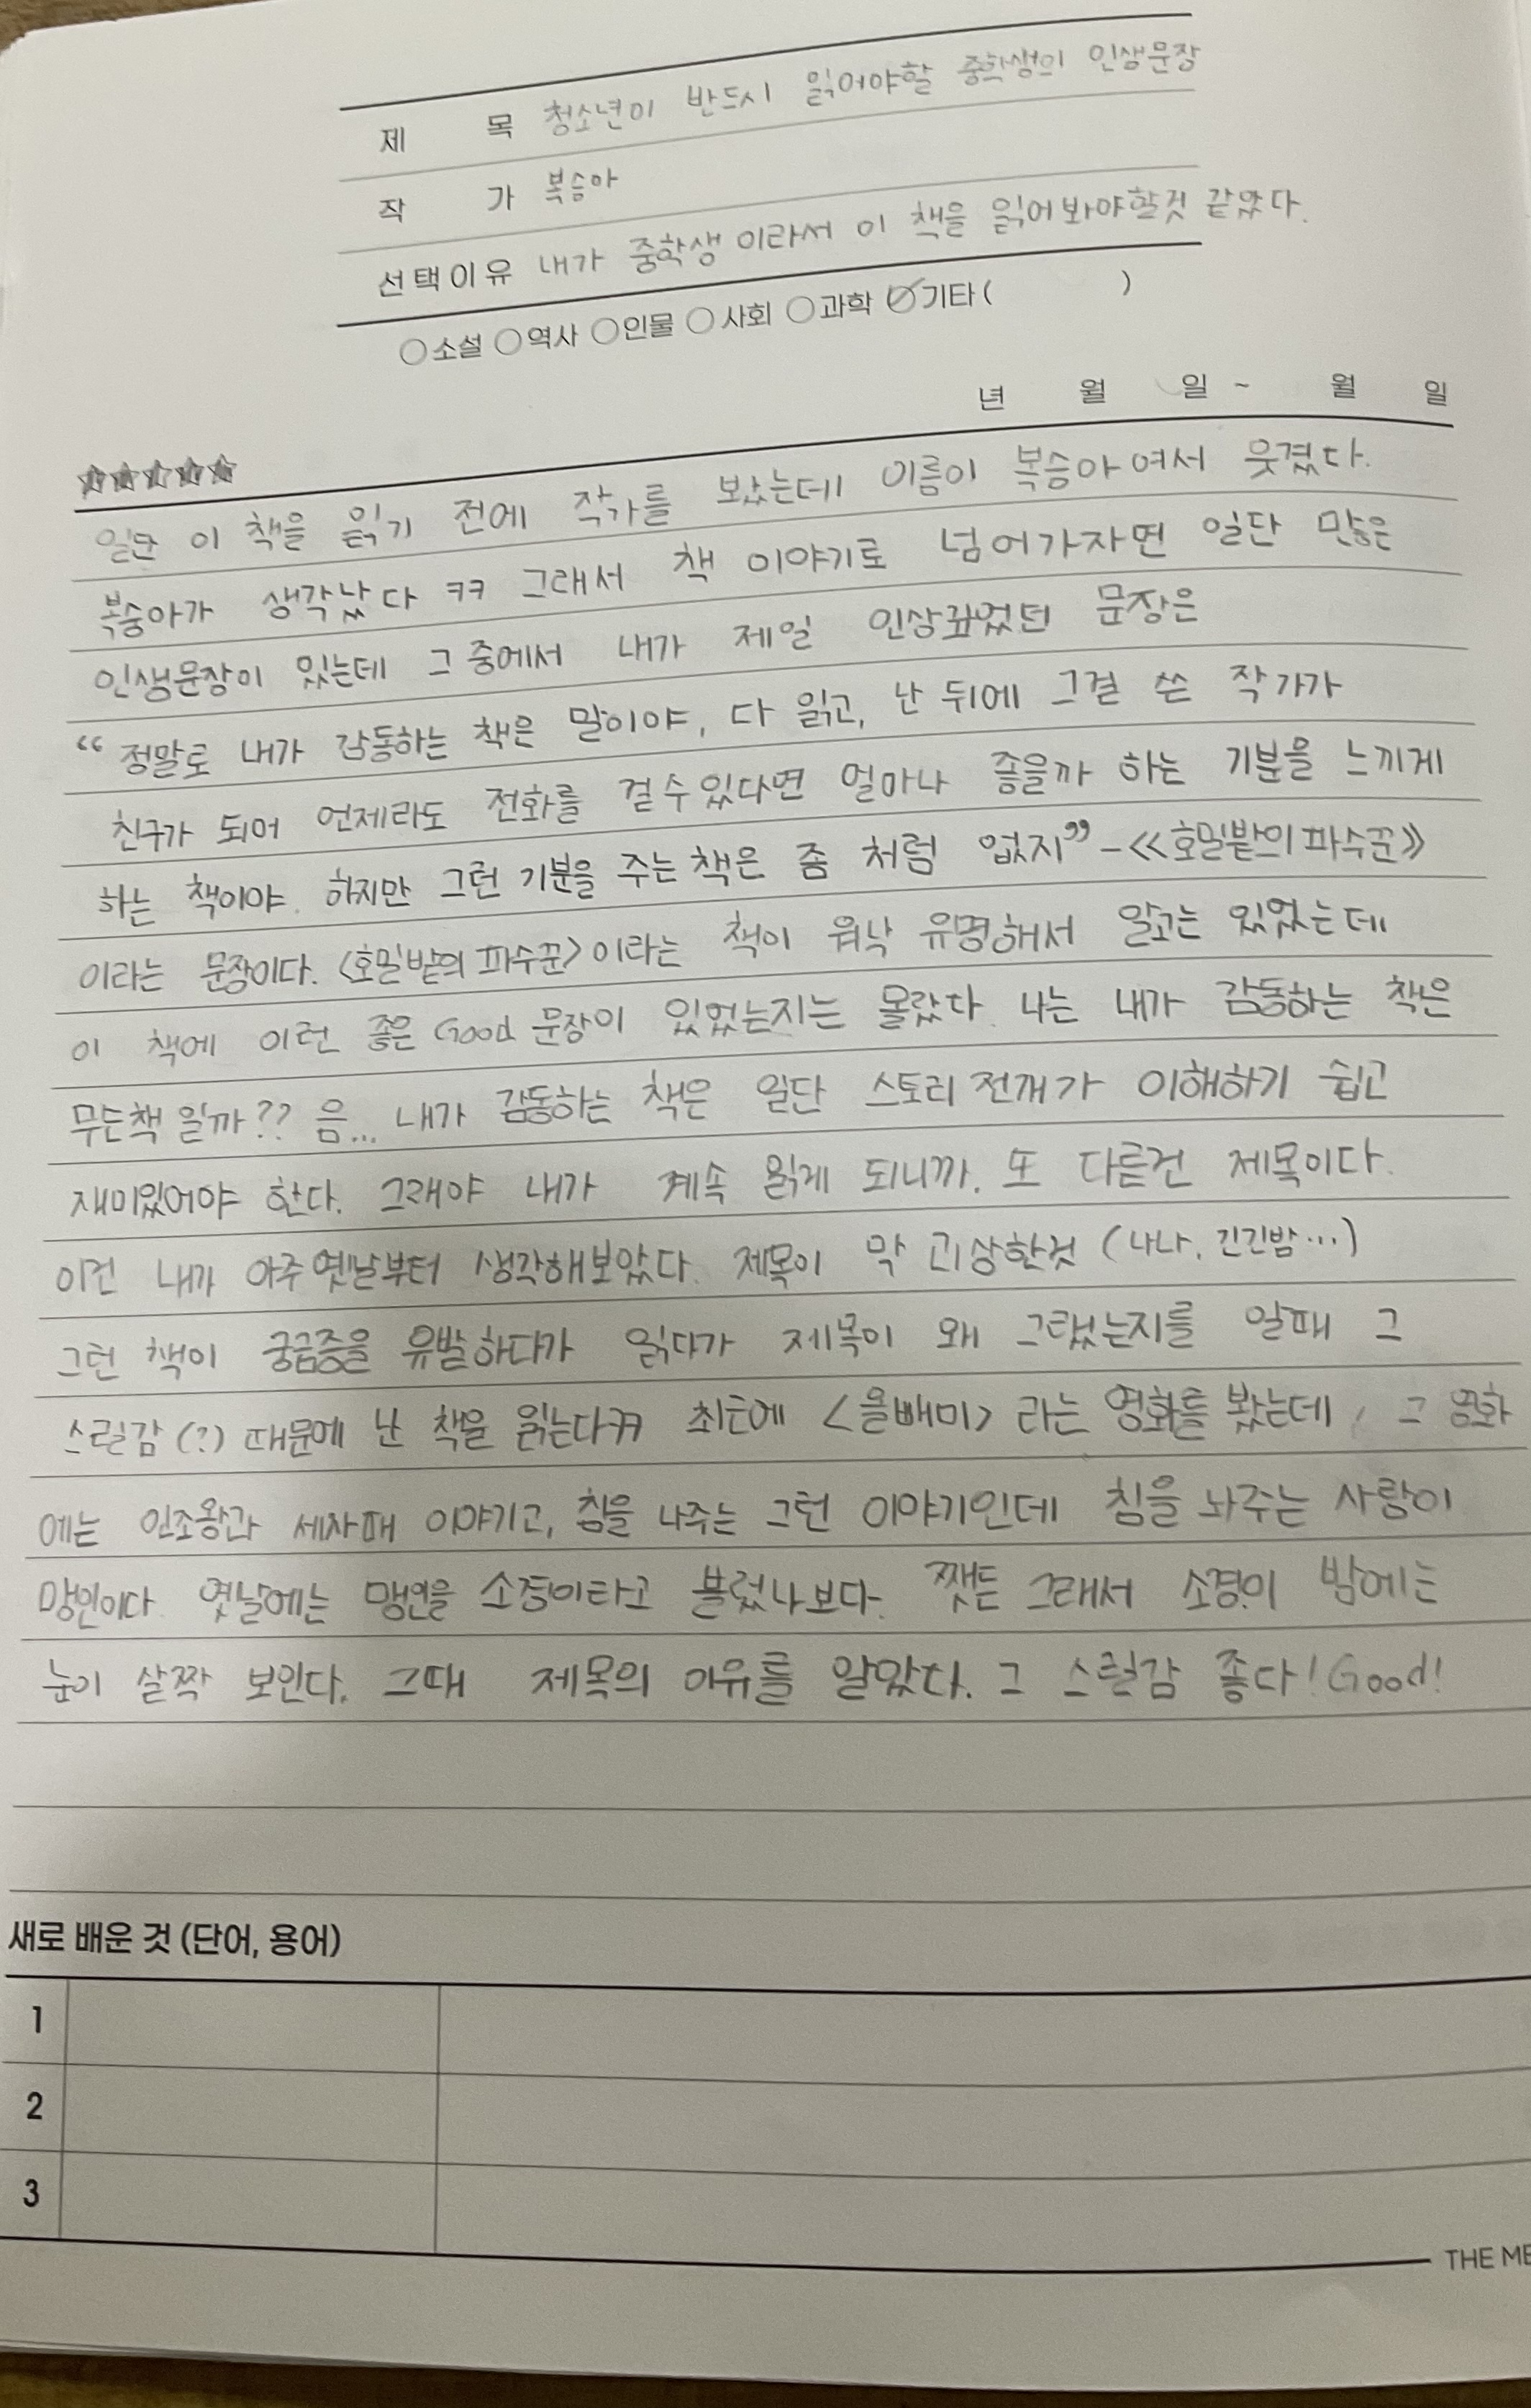 제 목 청소년이 반드시 읽어야할 중학생의 인생문장
작 가 복숭아
선택이유 내가 중학생이라서 이 책을 읽어봐야할것 같았다.
○소설 ○역사 ○인물 ○사회 ○과학 ○기타 ( )
년 월 일 ~ 월 일
☆☆☆☆☆
일단 이 책을 읽기 전에 작가를 봤는데 이름이 복숭아여서 웃겼다.
복숭아가 생각났다 ㅋㅋ 그래서 책 이야기로 넘어가자면 일단 많은
인생문장이 있는데 그 중에서 내가 제일 인상깊었던 문장은
“정말로 내가 감동하는 책은 말이야, 다 읽고, 난 뒤에 그걸 쓴 작가가
친구가 되어 언제라도 전화를 걸 수 있다면 얼마나 좋을까 하는 기분을 느끼게
하는 책이야. 하지만 그런 기분을 주는 책은 좀 처럼 없지” -《호밀밭의 파수꾼》
이라는 문장이다. <호밀밭의 파수꾼>이라는 책이 워낙 유명해서 알고는 있었는데
이 책에 이런 좋은 Good 문장이 있었는지는 몰랐다. 나는 내가 감동하는 책은
무슨책일까?? 음... 내가 감동하는 책은 일단 스토리 전개가 이해하기 쉽고
재미있어야 한다. 그래야 내가 계속 읽게 되니까. 또 다른건 제목이다.
이건 내가 아주 옛날부터 생각해보았다. 제목이 막 괴상한것 (나나, 긴긴밤...)
그런 책이 궁금증을 유발하다가 읽다가 제목이 왜 그랬는지를 알때 그
스릴감(?) 때문에 난 책을 읽는다ㅋㅋ 최근에 <올빼미> 라는 영화를 봤는데, 그 영화
에는 인조왕과 세자때 이야기고, 침을 놔주는 그런 이야기인데 침을 놔주는 사람이
맹인이다. 옛날에는 맹인을 소경이라고 불렀나보다. 쨋든 그래서 소경이 밤에는
눈이 살짝 보인다. 그때 제목의 이유를 알았다. 그 스릴감 좋다! Good!
새로 배운 것 (단어, 용어)
1
2
3